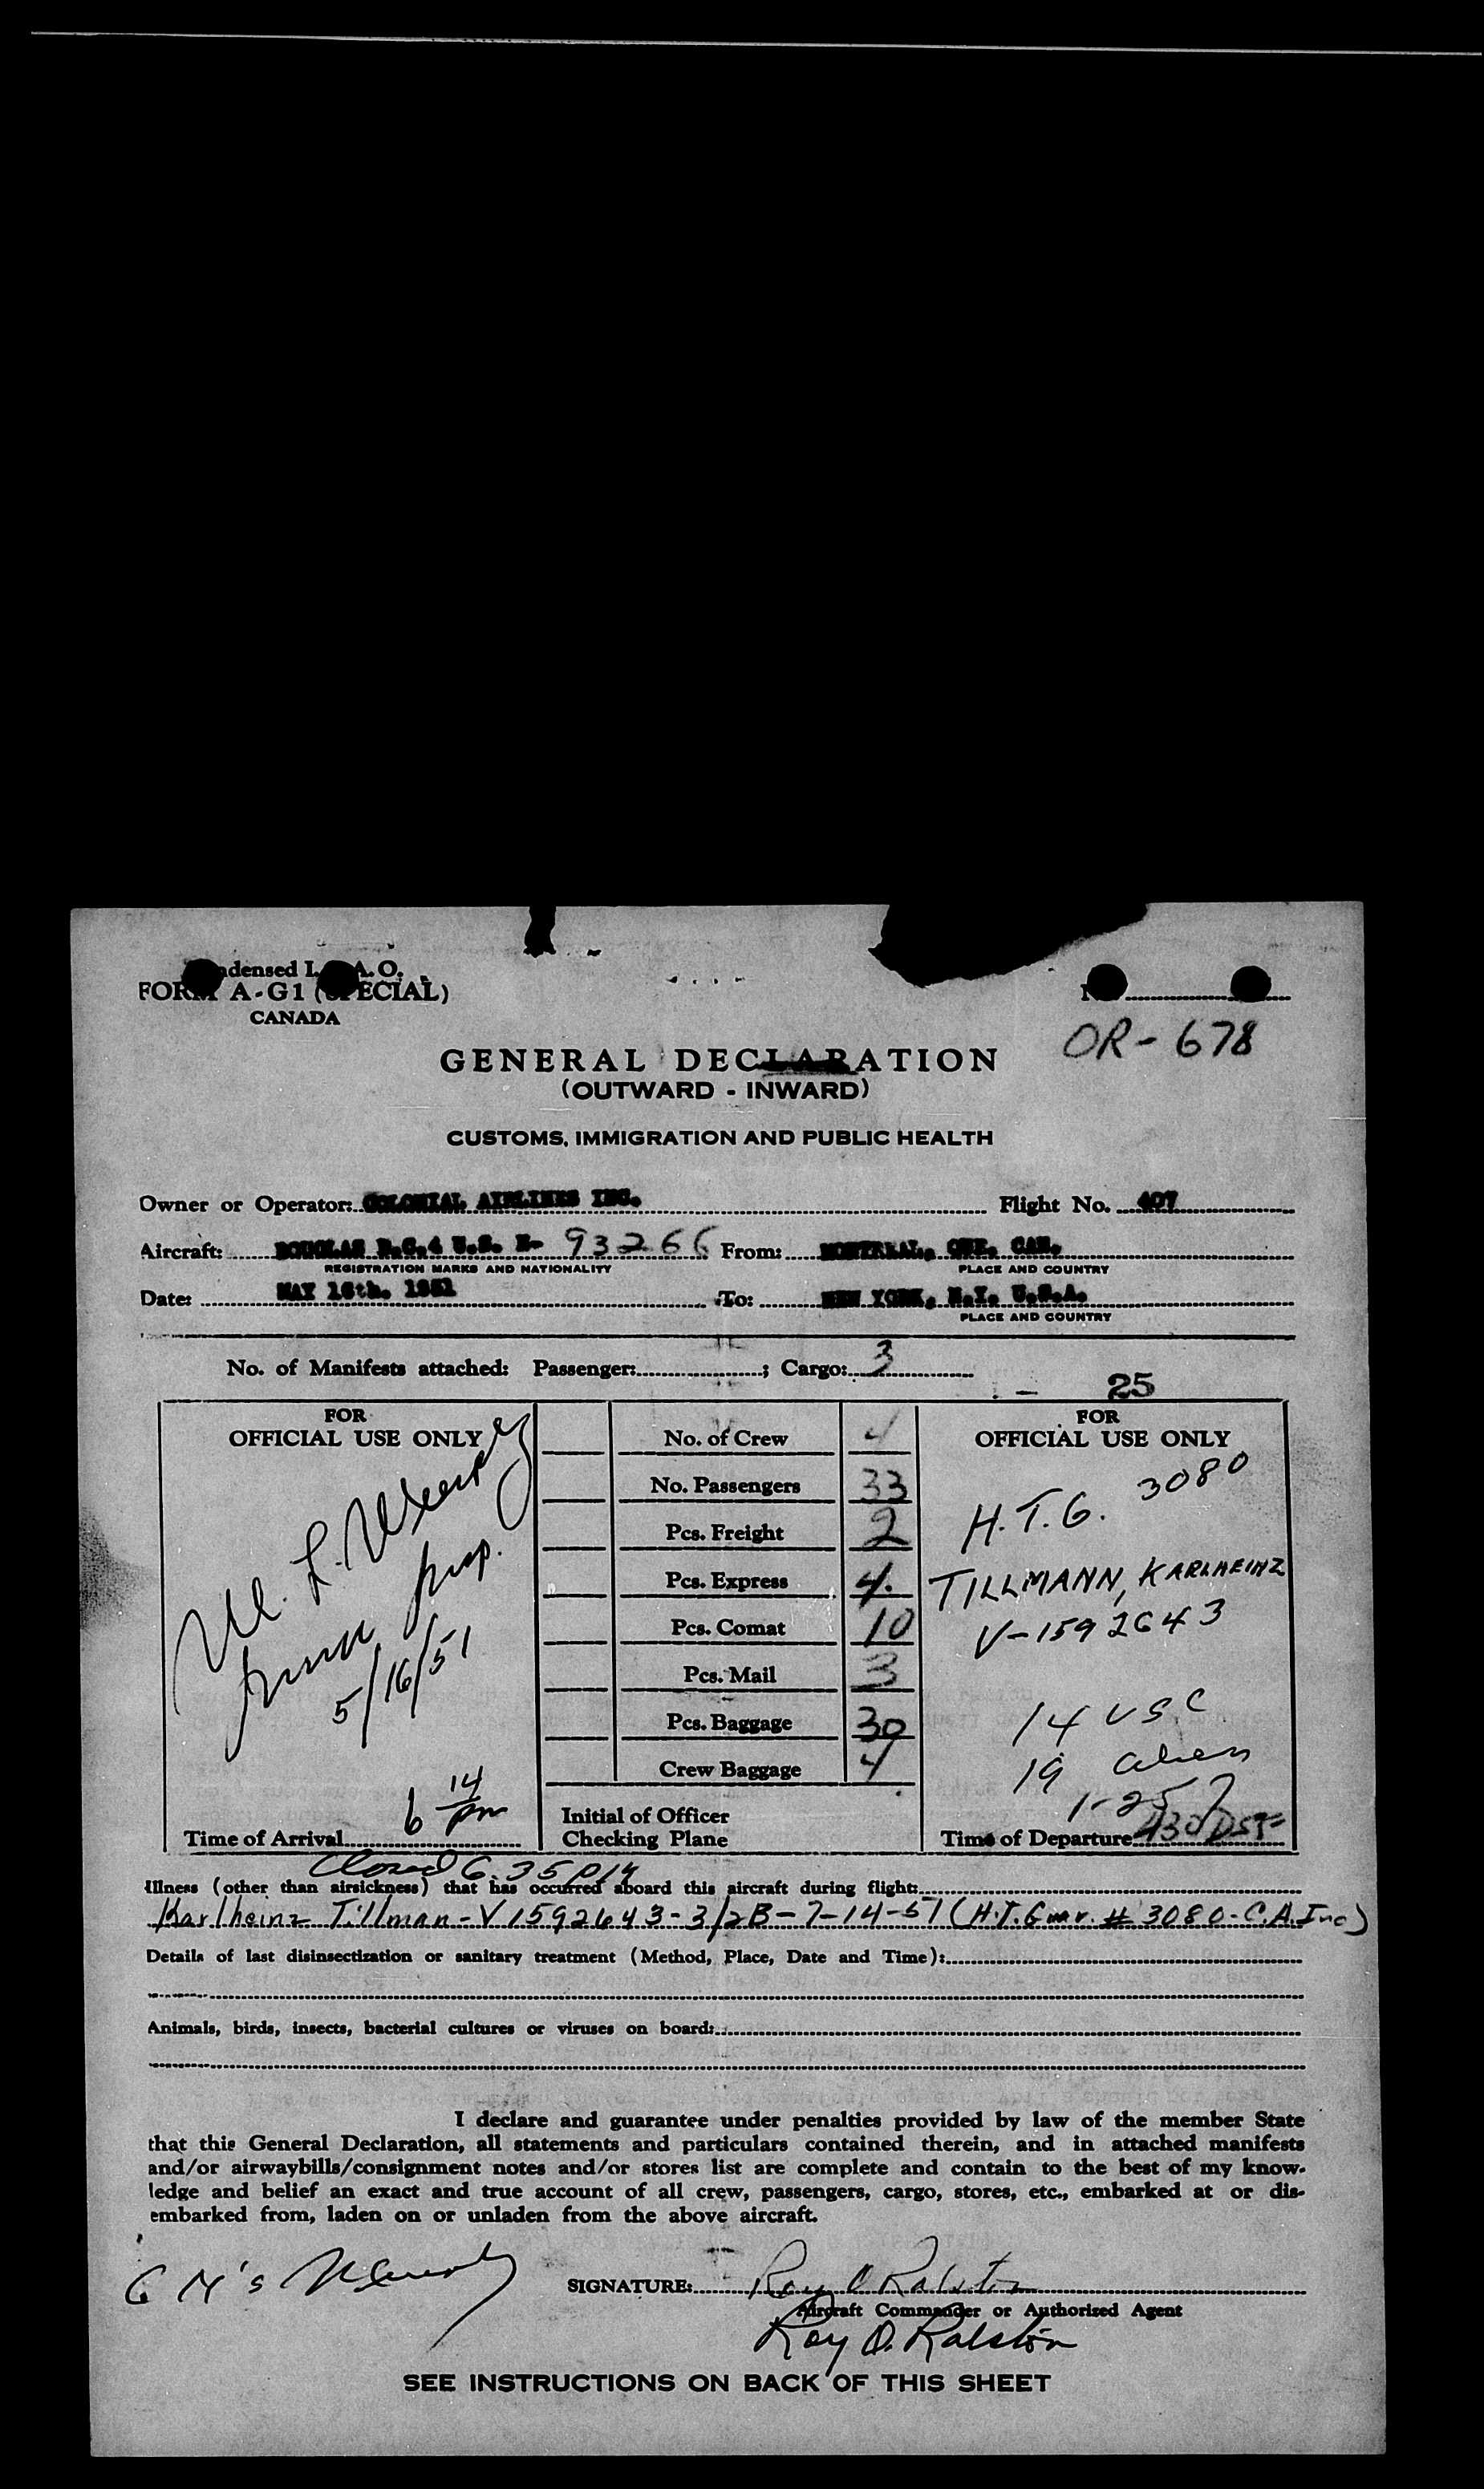 Condensed I.C.A.O.
FORM A-G1 (SPECIAL)
CANADA
No
OR-678
GENERAL DECLARATION
(OUTWARD - INWARD)
CUSTOMS, IMMIGRATION AND PUBLIC HEALTH
Owner or Operator: COLONIAL AIRLINES INC. Flight No. 407
Aircraft: DOUGLAS D.C.4 U.S. N- 93266 From: MONTREAL, QUE. CAN.
REGISTRATION MARKS AND NATIONALITY PLACE AND COUNTRY
Date: MAY 16th. 1951 To: NEW YORK, N.Y. U.S.A.
PLACE AND COUNTRY
No. of Manifests attached: Passenger: ; Cargo: 3
- 25
FOR
OFFICIAL USE ONLY
M. L.
5/16/51
6 14 pm
Time of Arrival
No. of Crew 4
No. Passengers 33
Pcs. Freight 2
Pcs. Express 4.
Pcs. Comat 10
Pcs. Mail 3
Pcs. Baggage 30
Crew Baggage 4
Initial of Officer
Checking Plane
FOR
OFFICIAL USE ONLY
H.T.G. 3080
TILLMANN, KARLHEINZ
V-1592643
14 USC
19 aliens
1-257
Time of Departure 430 DST
Closed 6.35 PM
Illness (other than airsickness) that has occurred aboard this aircraft during flight:
Karlheinz Tillman-V1592643-3/2B-7-14-51 (H.T.G mr. # 3080-C.A.Inc)
Details of last disinsectization or sanitary treatment (Method, Place, Date and Time):
Animals, birds, insects, bacterial cultures or viruses on board:
I declare and guarantee under penalties provided by law of the member State
that this General Declaration, all statements and particulars contained therein, and in attached manifests
and/or airwaybills/consignment notes and/or stores list are complete and contain to the best of my know-
ledge and belief an exact and true account of all crew, passengers, cargo, stores, etc., embarked at or dis-
embarked from, laden on or unladen from the above aircraft.
6 M's
SIGNATURE: Roy O Ralston
Aircraft Commander or Authorized Agent
Roy O. Ralston
SEE INSTRUCTIONS ON BACK OF THIS SHEET